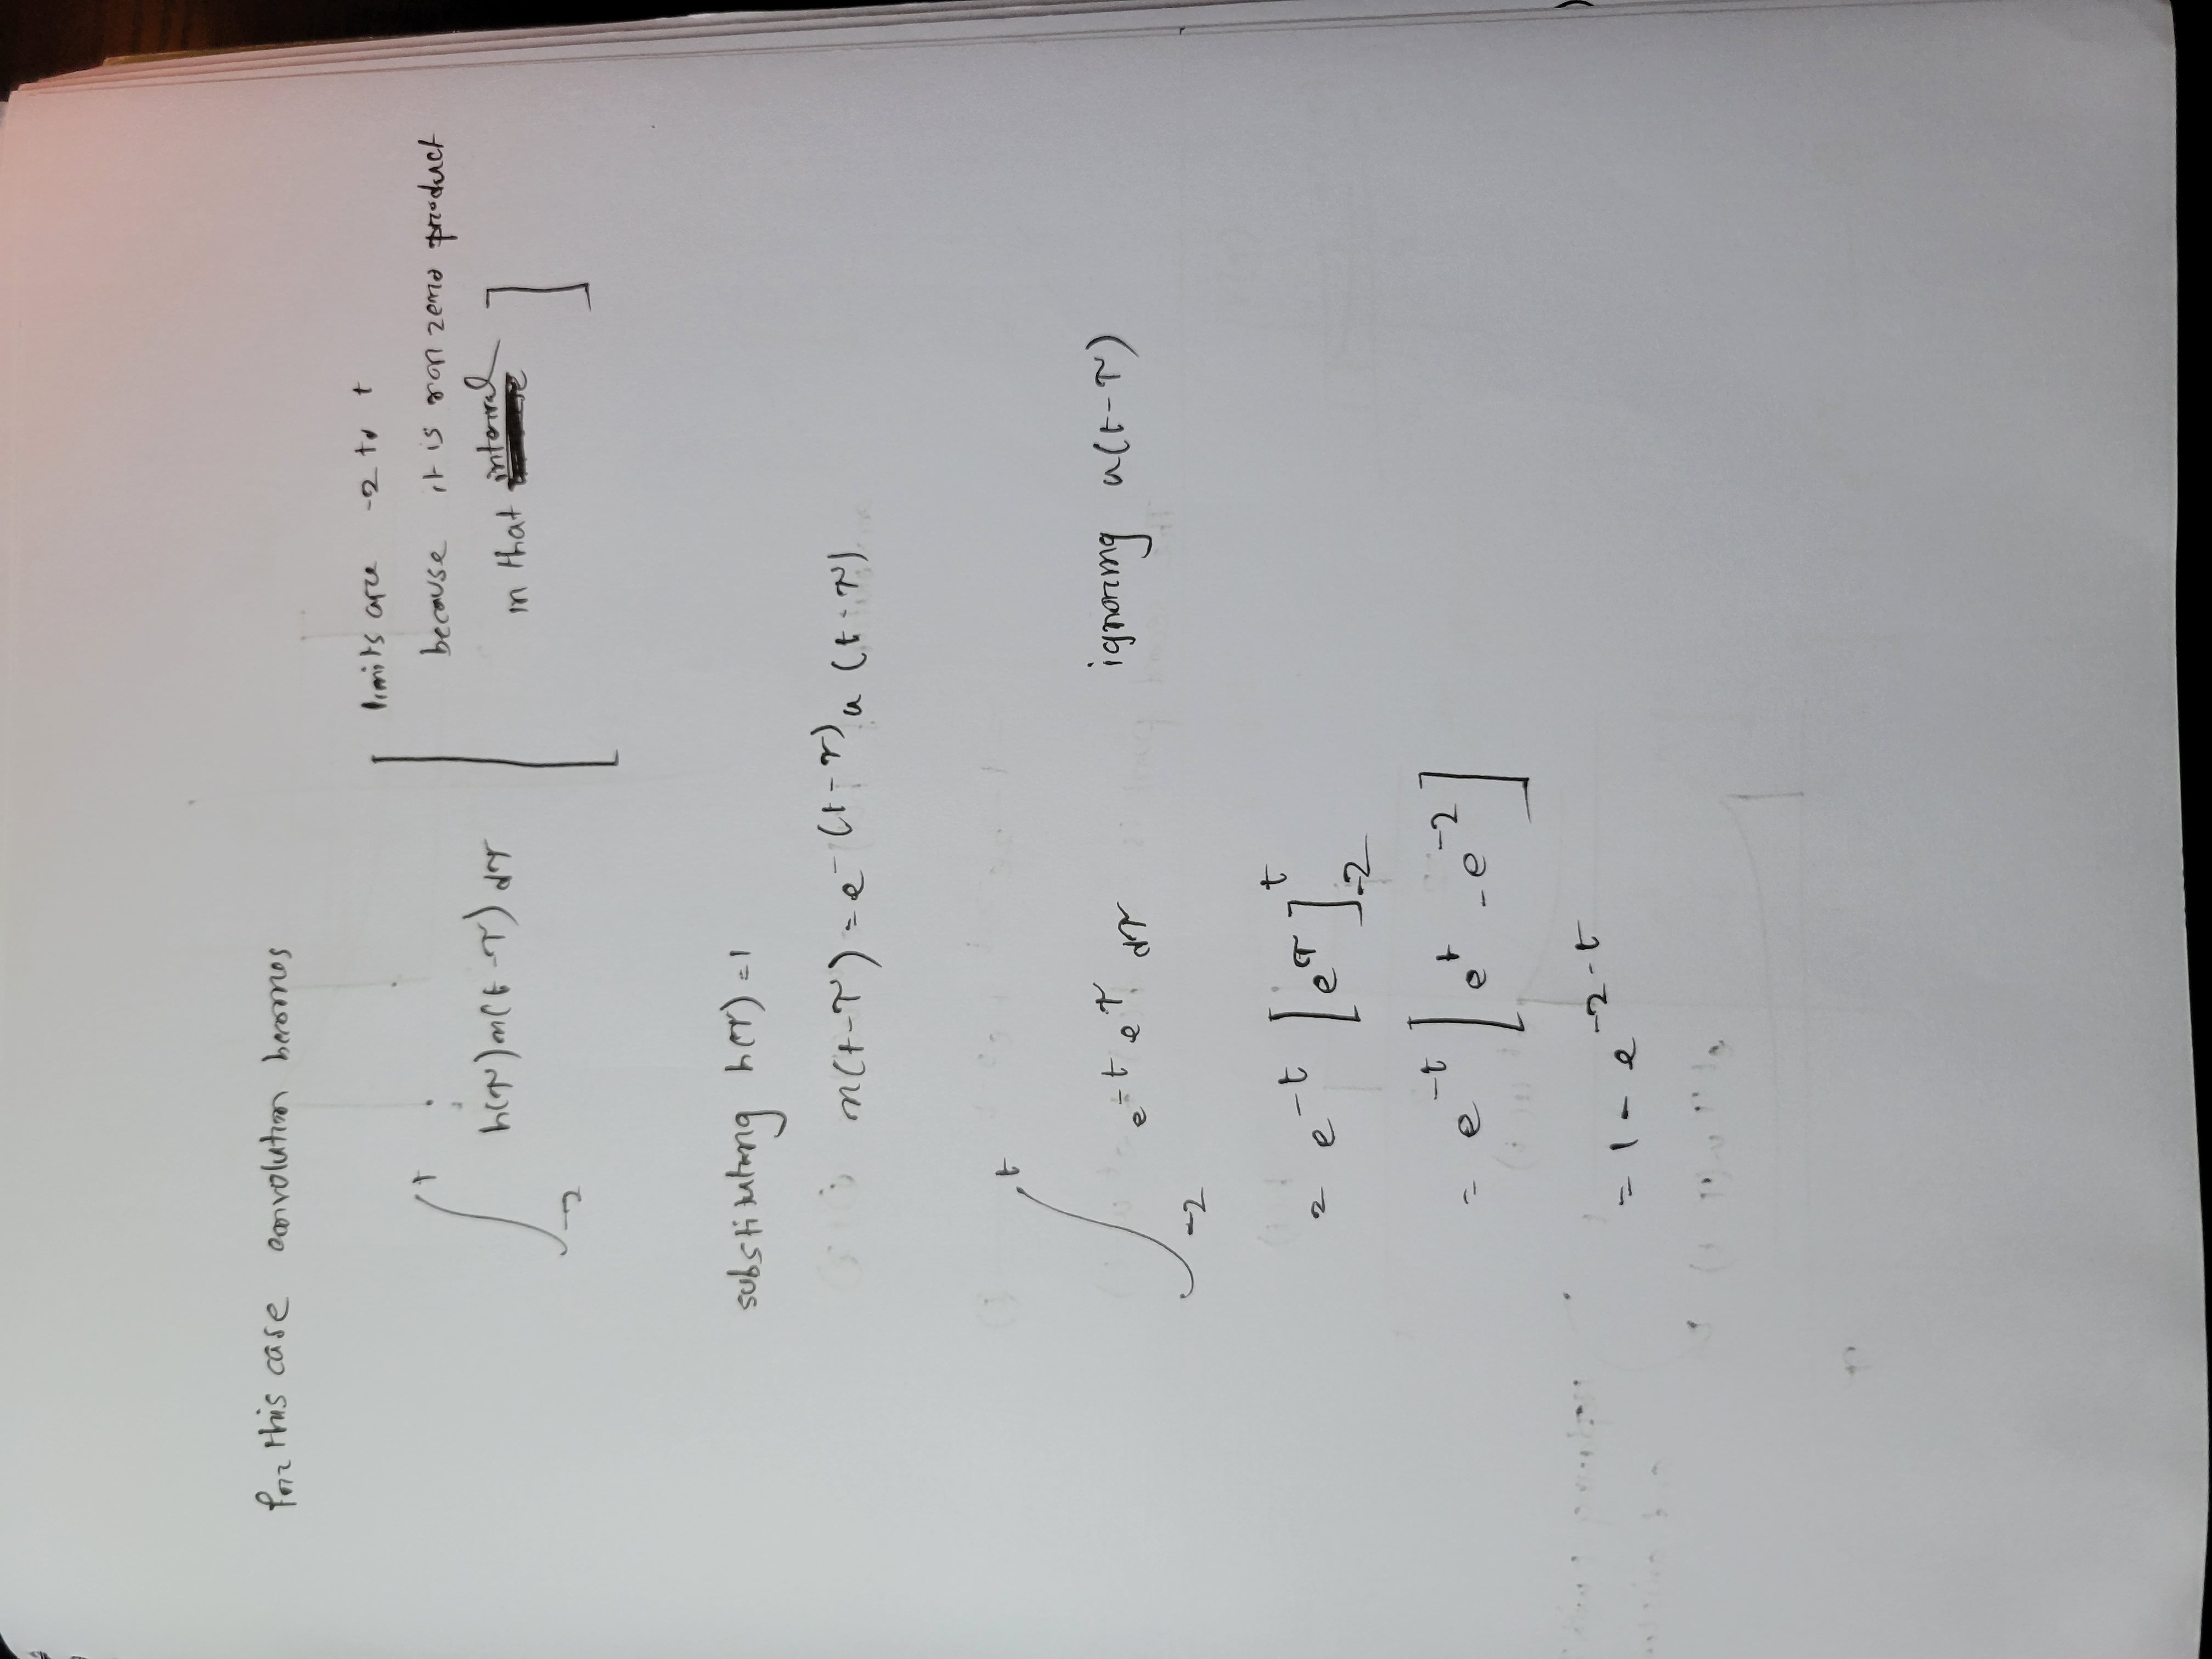 for this case convolution becomes
∫_{-2}^{t} h(τ)x(t-τ) dτ
[ limits are -2 to t
because it is non zero product
in that interval ]
substituting h(τ) = 1
x(t-τ) = e^{-(t-τ)} u(t-τ)
∫_{-2}^{t} e^{-t} e^{τ} dτ ignoring u(t-τ)
= e^{-t} [e^{τ}]_{-2}^{t}
= e^{-t} [e^{t} - e^{-2}]
= 1 - e^{-2-t}